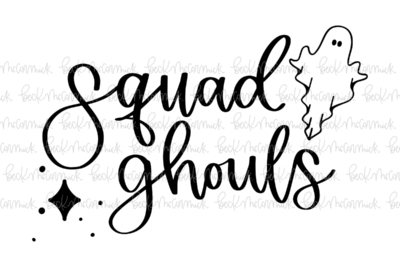 Squad
ghouls